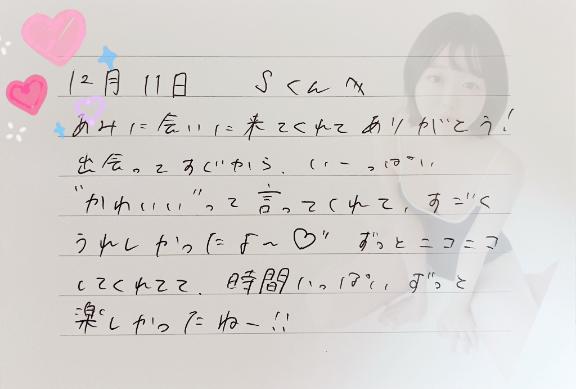 12月11日 Sくんへ
あみに会いに来てくれてありがとう!
出会ってすぐから、いーっぱい
"かわいい"って言ってくれて、すごく
うれしかったよ〜♡" ずっとニコニコ
してくれてて、時間いっぱいずっと
楽しかったねー!!